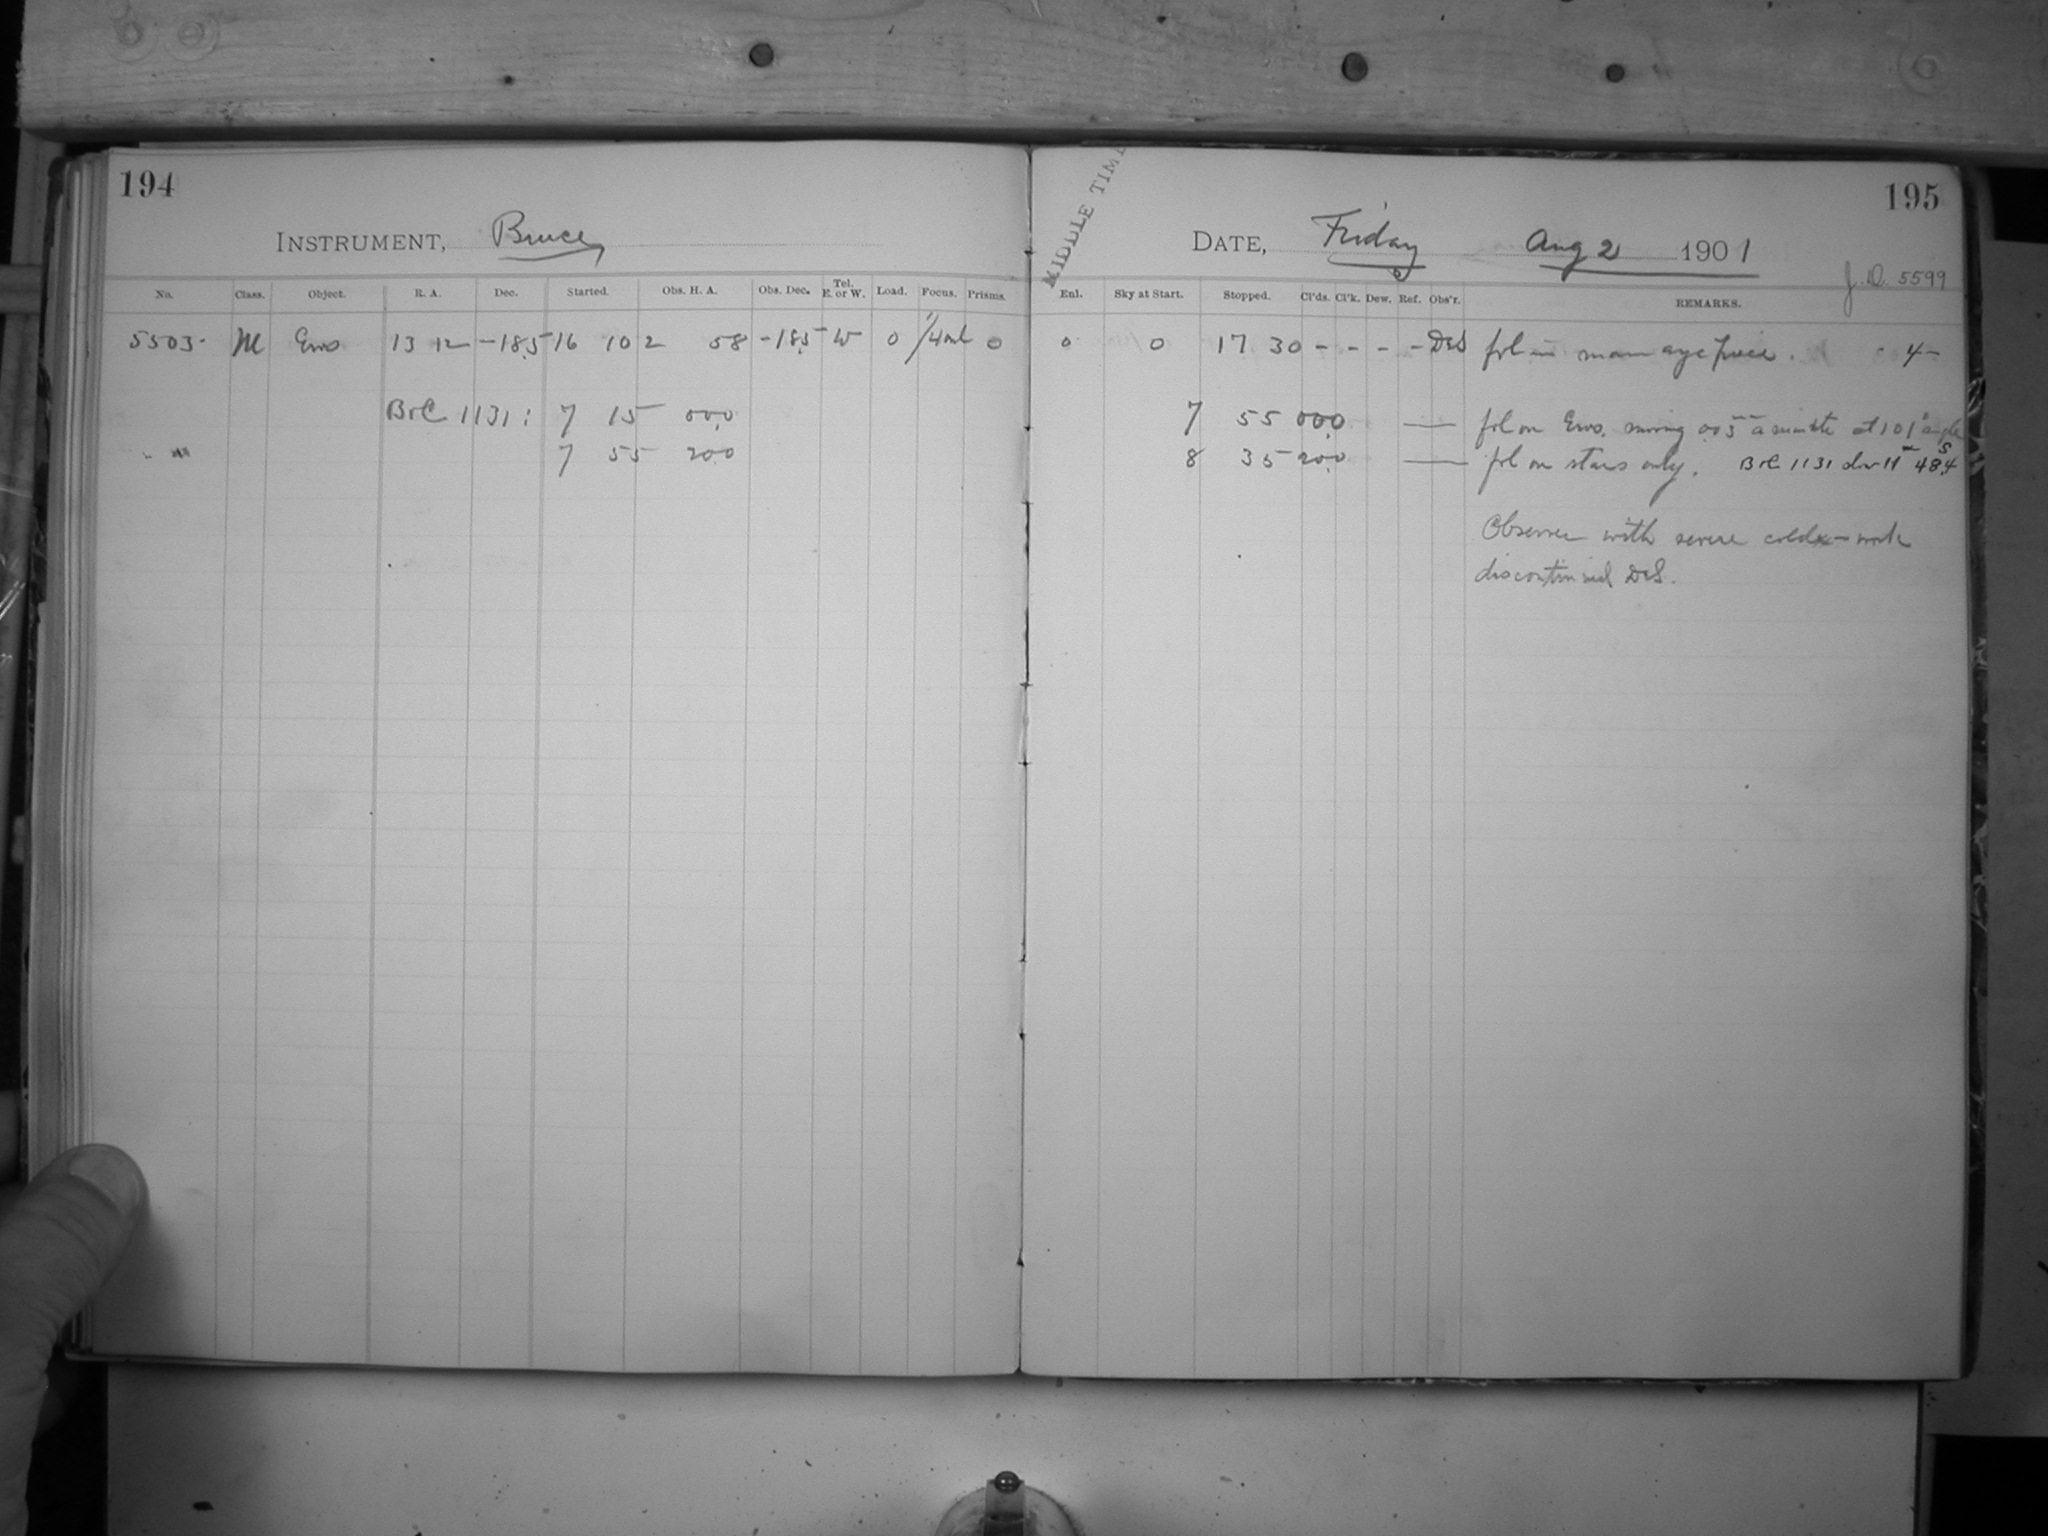 194
INSTRUMENT, Bruce
No. Class. Object. R. A. Dec. Started. Obs. H. A. Obs. Dec. Tel. E. or W. Load. Focus. Prisms.
5503 M Eros 13 12 -18.5 16 10 2 58 -18.5 W 0 0
B&C 1131: 7 15 00.0
7 55 20.0
MIDDLE TIME
195
DATE, Friday Aug 2 1901
J.D. 5599
Enl. Sky at Start. Stopped. Cl'ds. Cl'k. Dew. Ref. Obs'r. REMARKS.
0 0 17 30 - - - - DeS fol 4-
7 55 00.0 — fol on Eros. moving a minute at 101° angle
8 35 20.0 — fol on stars only. B&C 1131 slow 11m 48s.4
Observer with severe cold - work
discontinued DeS.